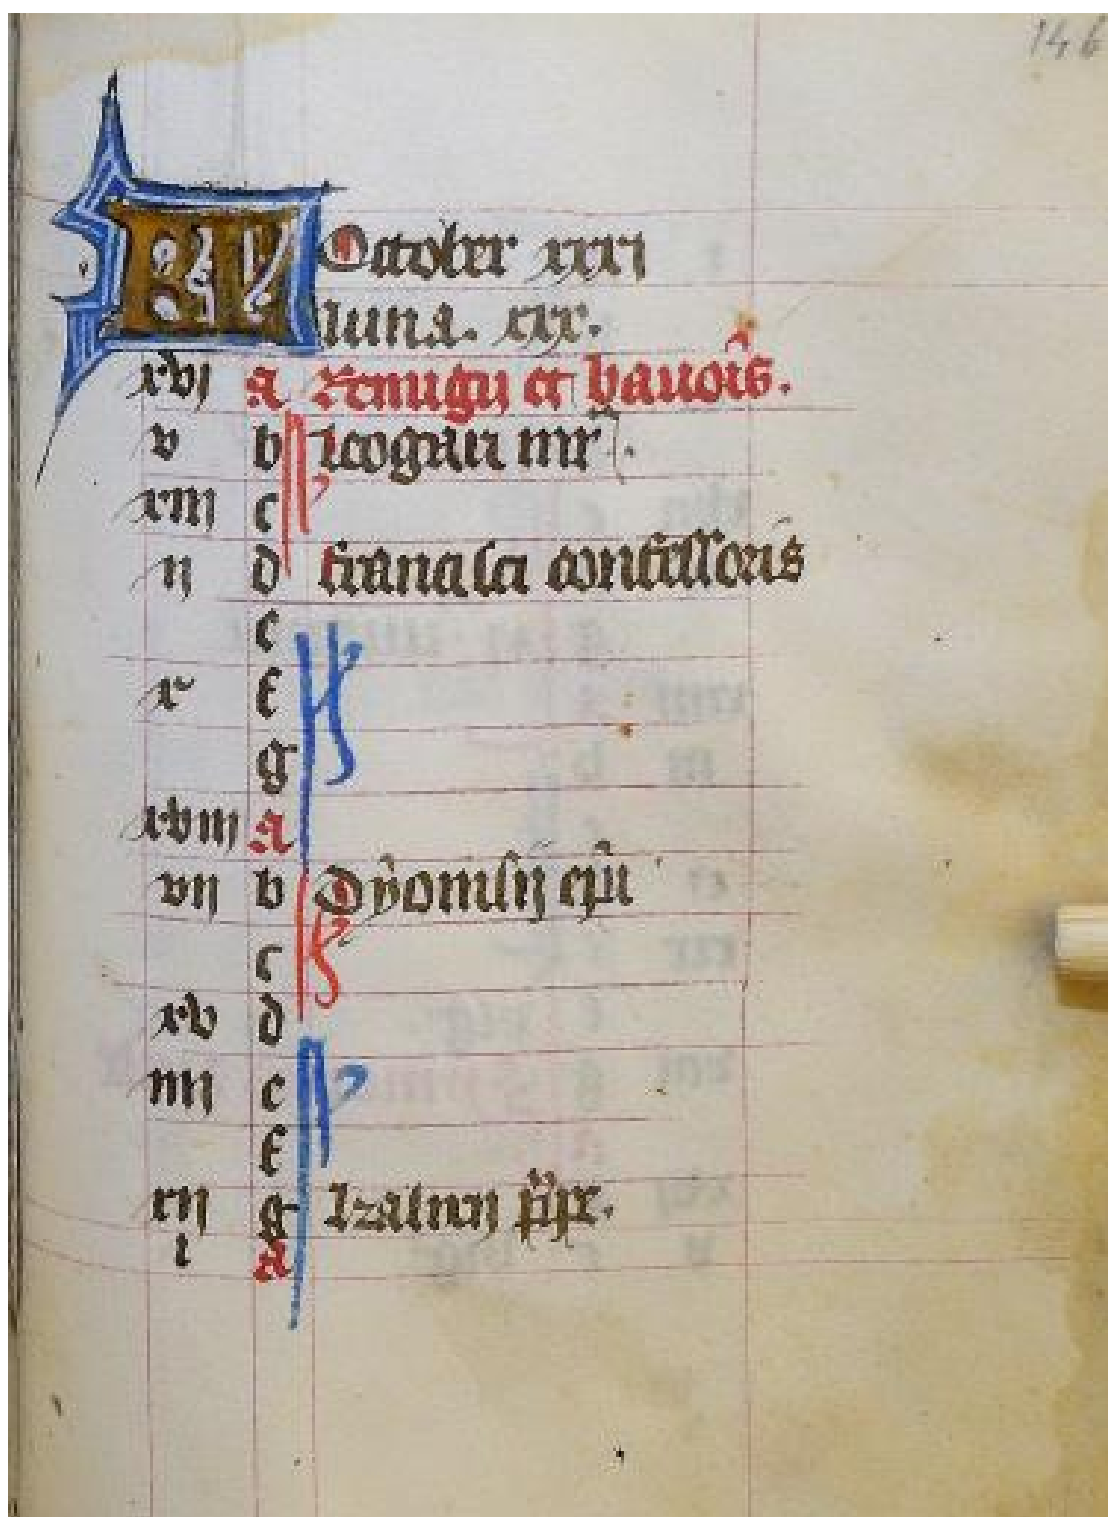 146
KL October xxxi
luna. xxx.
xvj a Remigij et bauois.
v b leogarii mr.
xiij c
ij d francisci confessoris
e
x f
g
xviij a
vij b dyonisij epi
c
xv d
iiij e
f
xij g kalixti pp.
i a